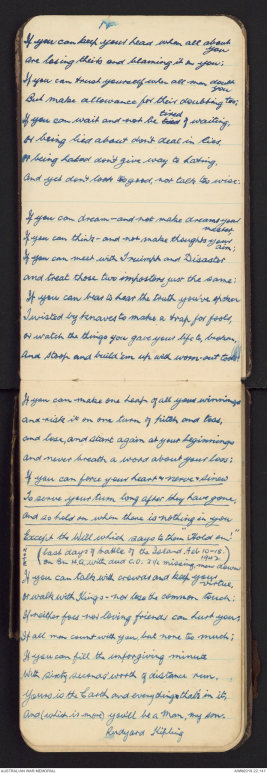 If you can keep your head when all about you
Are losing theirs and blaming it on you;
If you can trust yourself when all men doubt you
But make allowance for their doubting too;
If you can wait and not be tired of waiting,
Or being lied about don't deal in lies,
Or being hated don't give way to hating,
And yet don't look too good, nor talk too wise:
If you can dream - and not make dreams your master,
If you can think - and not make thoughts your aim;
If you can meet with Triumph and Disaster
And treat those two impostors just the same:
If you can bear to hear the truth you've spoken
Twisted by knaves to make a trap for fools,
Or watch the things you gave your life to, broken,
And stoop and build 'em up with worn-out tools
If you can make one heap of all your winnings
And risk it on one turn of pitch and toss,
And lose, and start again at your beginnings
And never breath a word about your loss:
If you can force your heart & nerve & sinew
To serve your turn long after they have gone,
And so hold on when there is nothing in you
Except the Will which says to them "Hold on!"
(last days of battle of the Island Feb 10-15. 1942
on Bn H.Q. with and C.O. 2 i/c missing, men down
If you can talk with crowds and keep your virtue,
Or walk with Kings - nor lose the common touch:
If neither foes nor loving friends can hurt you,
If all men count with you, but none too much;
If you can fill the unforgiving minute
With sixty seconds' worth of distance run,
Yours is the Earth and everything that's in it,
And (which is more) you'll be a Man, my son.
Rudyard Kipling
AUSTRALIAN WAR MEMORIAL